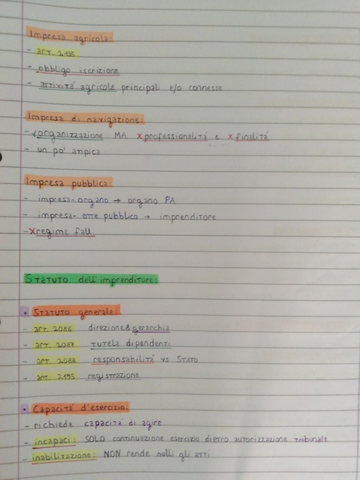 Impresa agricola
- art. 2135
- obbligo iscrizione
- attività agricole principali e/o connesse
Impresa di navigazione
- organizzazione MA x professionalità e x finalità
- un po' atipica
Impresa pubblica
- impresa-organo → organo PA
- impresa-ente pubblico → imprenditore
- x regime fall.
STATUTO dell'imprenditore
• Statuto generale
- art. 2086 direzione & gerarchia
- art. 2087 tutela dipendenti
- art. 2088 responsabilità vs Stato
- art. 2195 registrazione
• Capacità d'esercizio
- richiede capacità di agire
- incapaci: SOLO continuazione esercizio dietro autorizzazione tribunale
- inabilitazione: NON rende nulli gli atti